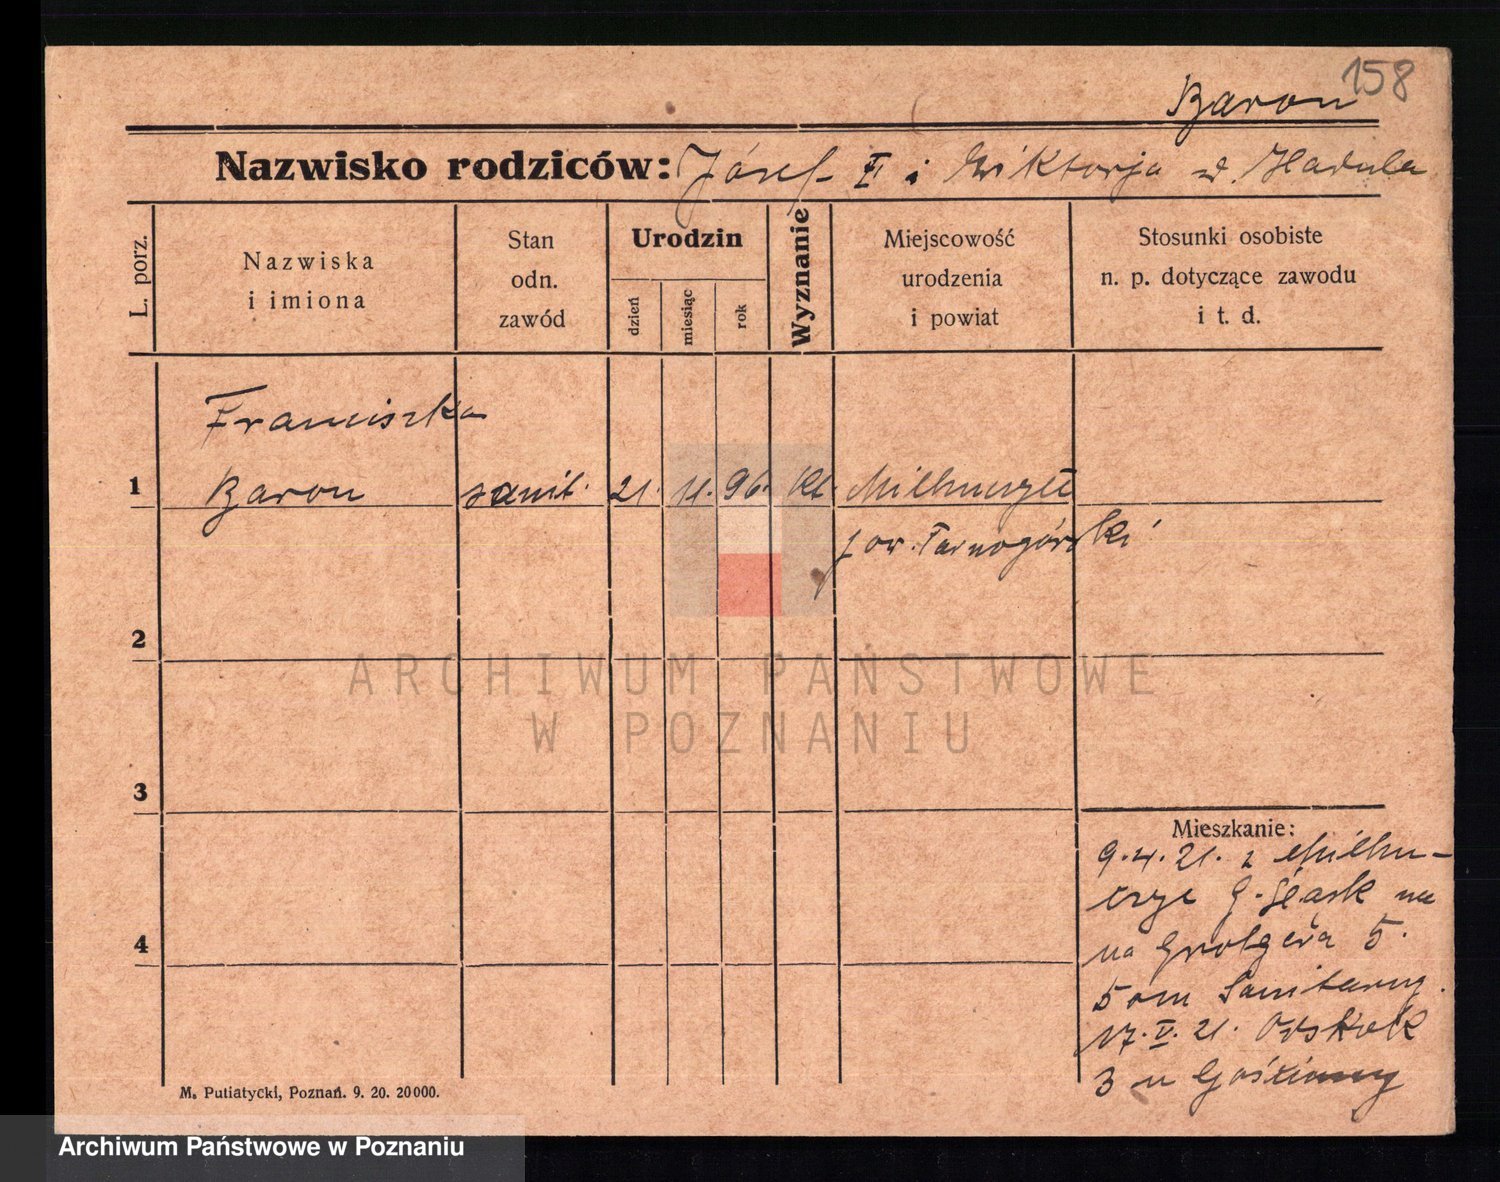 158
Baron
Nazwisko rodziców: Józef † i Wiktorja d. Hadula
L. porz.
Nazwiska
i imiona
Stan
odn.
zawód
Urodzin
dzień
miesiąc
rok
Wyznanie
Miejscowość
urodzenia
i powiat
Stosunki osobiste
n. p. dotyczące zawodu
i t. d.
Franciszka
1 Baron sanit. 21. 11. 96. kt.
pow. Tarnogórski
2
ARCHIWUM PAŃSTWOWE
W POZNANIU
3
Mieszkanie:
9.4.21. z
G. Śląsk na
4
na Grolgera 5.
Dom Sanitarny.
17.V.21.
3 u
M. Putiatycki, Poznań. 9. 20. 20000.
Archiwum Państwowe w Poznaniu